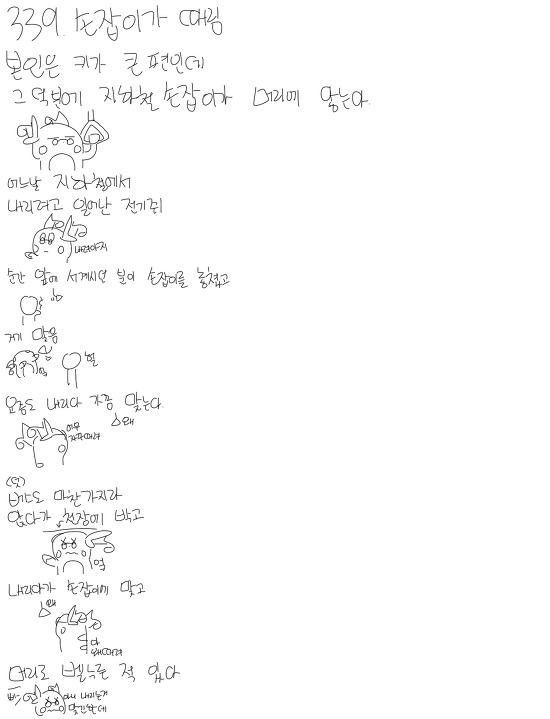 339. 손잡이가 때림
본인은 키가 큰 편인데
그 덕분에 지하철 손잡이가 머리에 닿는다.
어느날 지하철에서
내리려고 일어난 전기쥐
내려야지
순간 앞에 서계시던 분이 손잡이를 놓쳤고
그게 맞음
헐
요즘도 내리다 가끔 맞는다.
왜
아무
(덧)
버스도 마찬가지라
앉다가 천장에 박고
억
내리다가 손잡이에 맞고
왜
아
왜때려
머리로 벨 누른 적 있다
아니 내리는거
맞긴한데